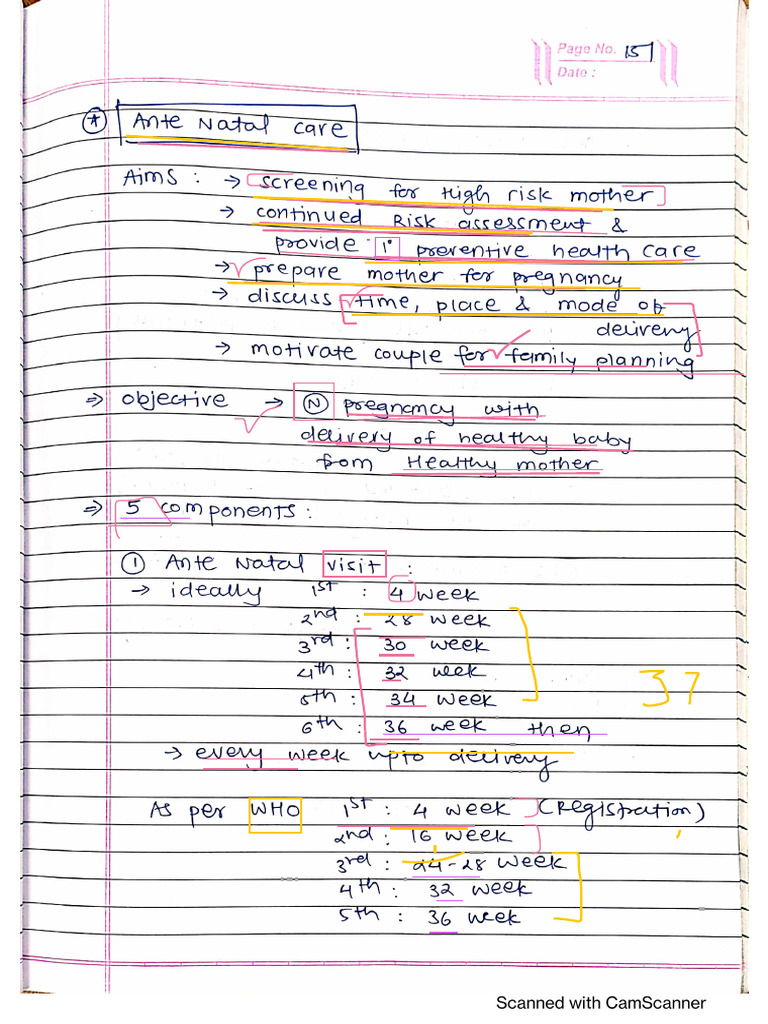 Page No. 151
Date :
* Ante Natal care
Aims : → screening for High risk mother
→ continued Risk assessment &
provide 1° preventive health care
→ prepare mother for pregnancy
→ discuss time, place & mode of
delivery
→ motivate couple for family planning
⇒ objective → N pregnancy with
delivery of healthy baby
from Healthy mother
⇒ 5 components :
① Ante Natal visit :
→ ideally 1st : 4 week
2nd : 28 week
3rd : 30 week
4th : 32 week
5th : 34 week
37
6th : 36 week then
→ every week upto delivery
As per WHO 1st : 4 week (Registration)
2nd : 16 week
3rd : 24-28 week
4th : 32 week
5th : 36 week
Scanned with CamScanner